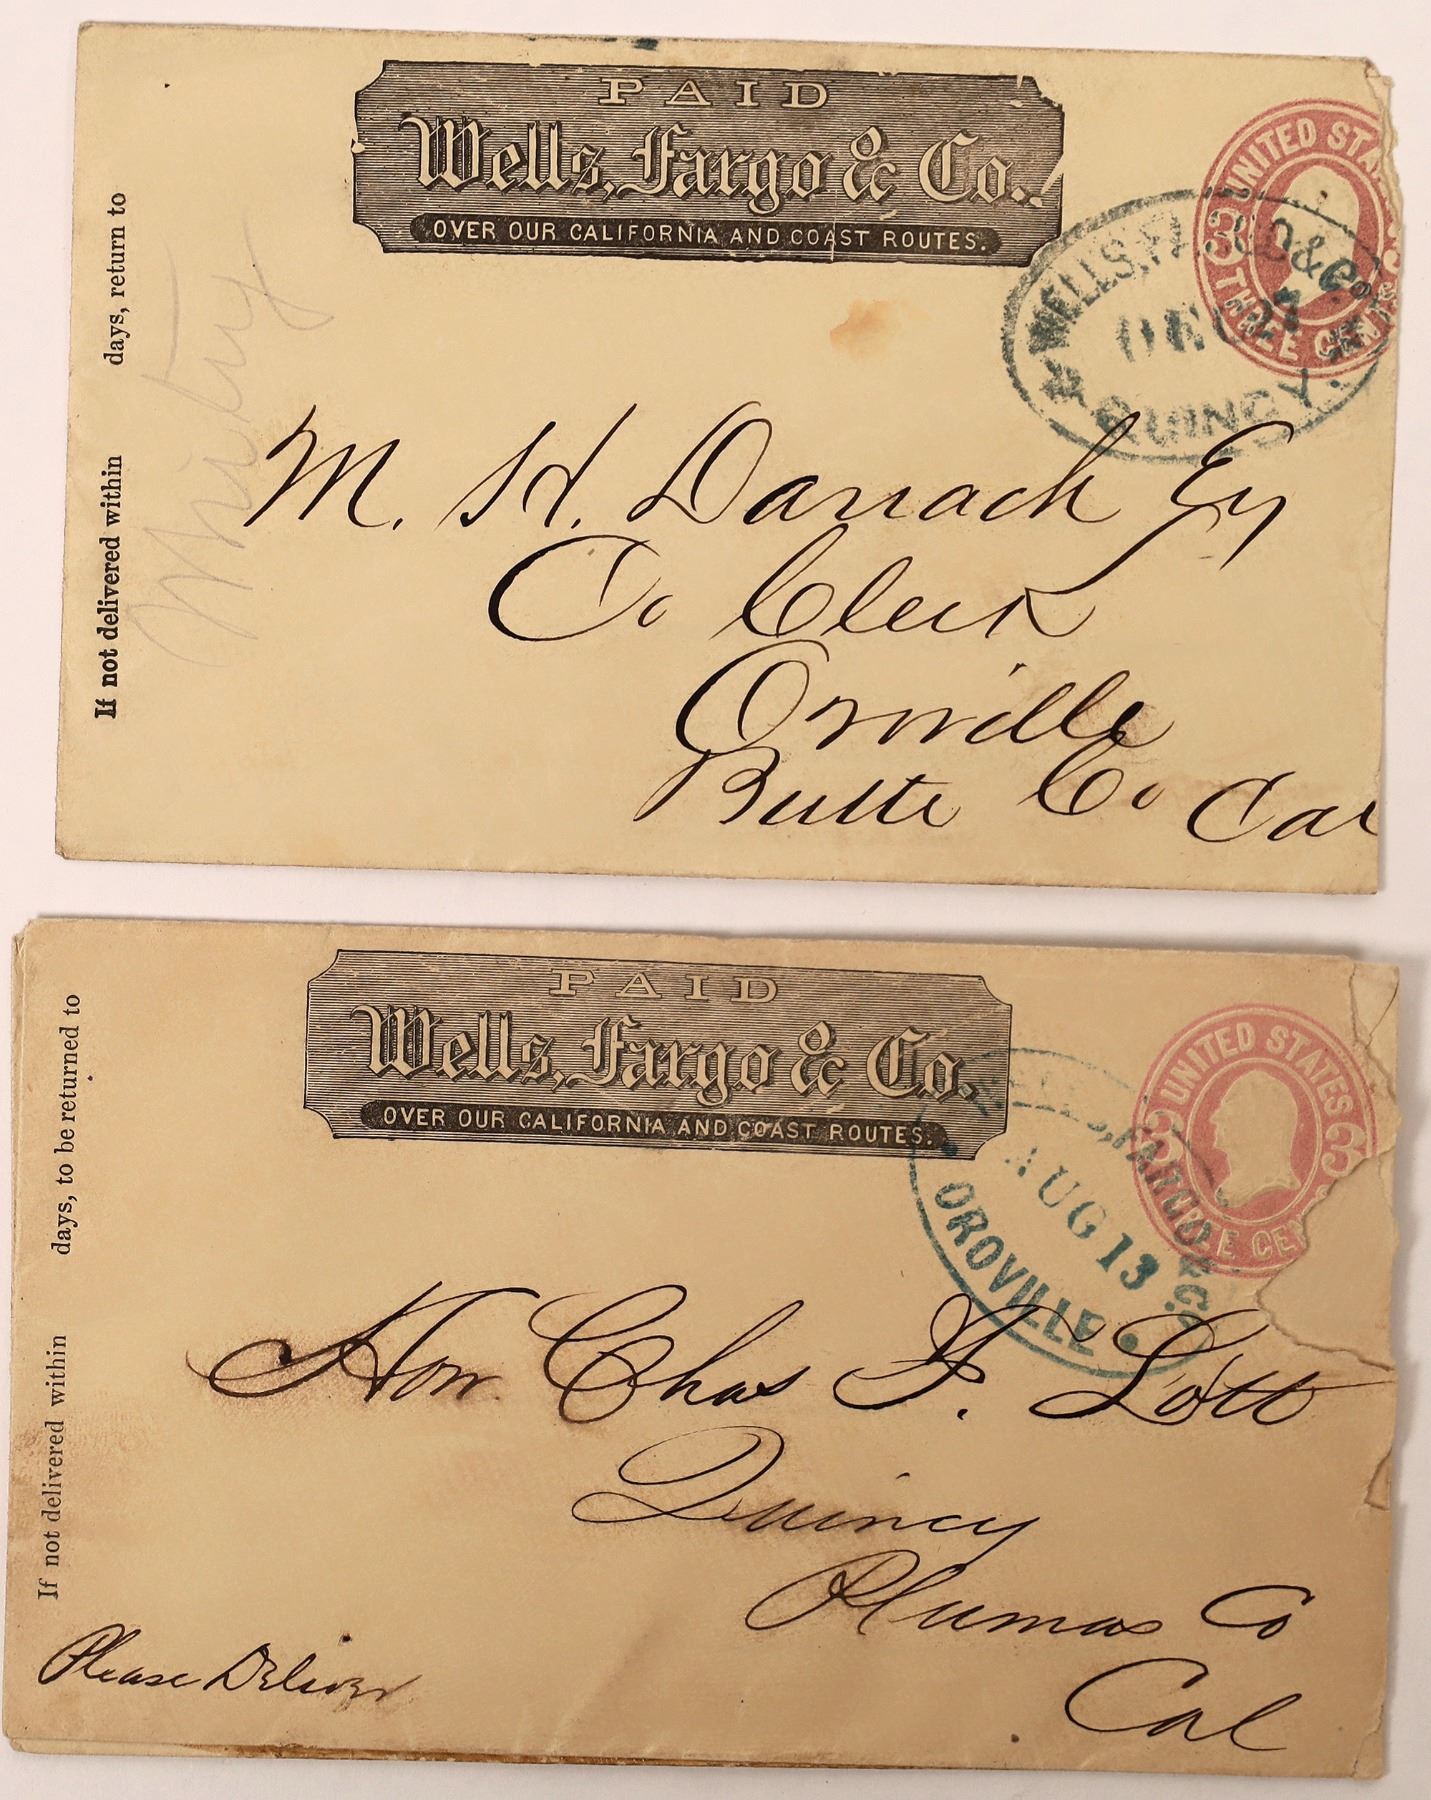 PAID
Wells, Fargo & Co.
OVER OUR CALIFORNIA AND COAST ROUTES.
UNITED STATES
3 3
THREE CENTS
WELLS, FARGO & Co.
DEC 27
QUINCY.
If not delivered within days, return to
M. H. Darrach Esq
Co Clerk
Oroville
Butte Co Cal
PAID
Wells, Fargo & Co.
OVER OUR CALIFORNIA AND COAST ROUTES.
UNITED STATES
3 3
THREE CENTS
WELLS, FARGO & Co.
AUG 13
OROVILLE
If not delivered within days, to be returned to
Hon. Chas F. Lott
Quincy
Plumas Co
Cal
Please Deliver